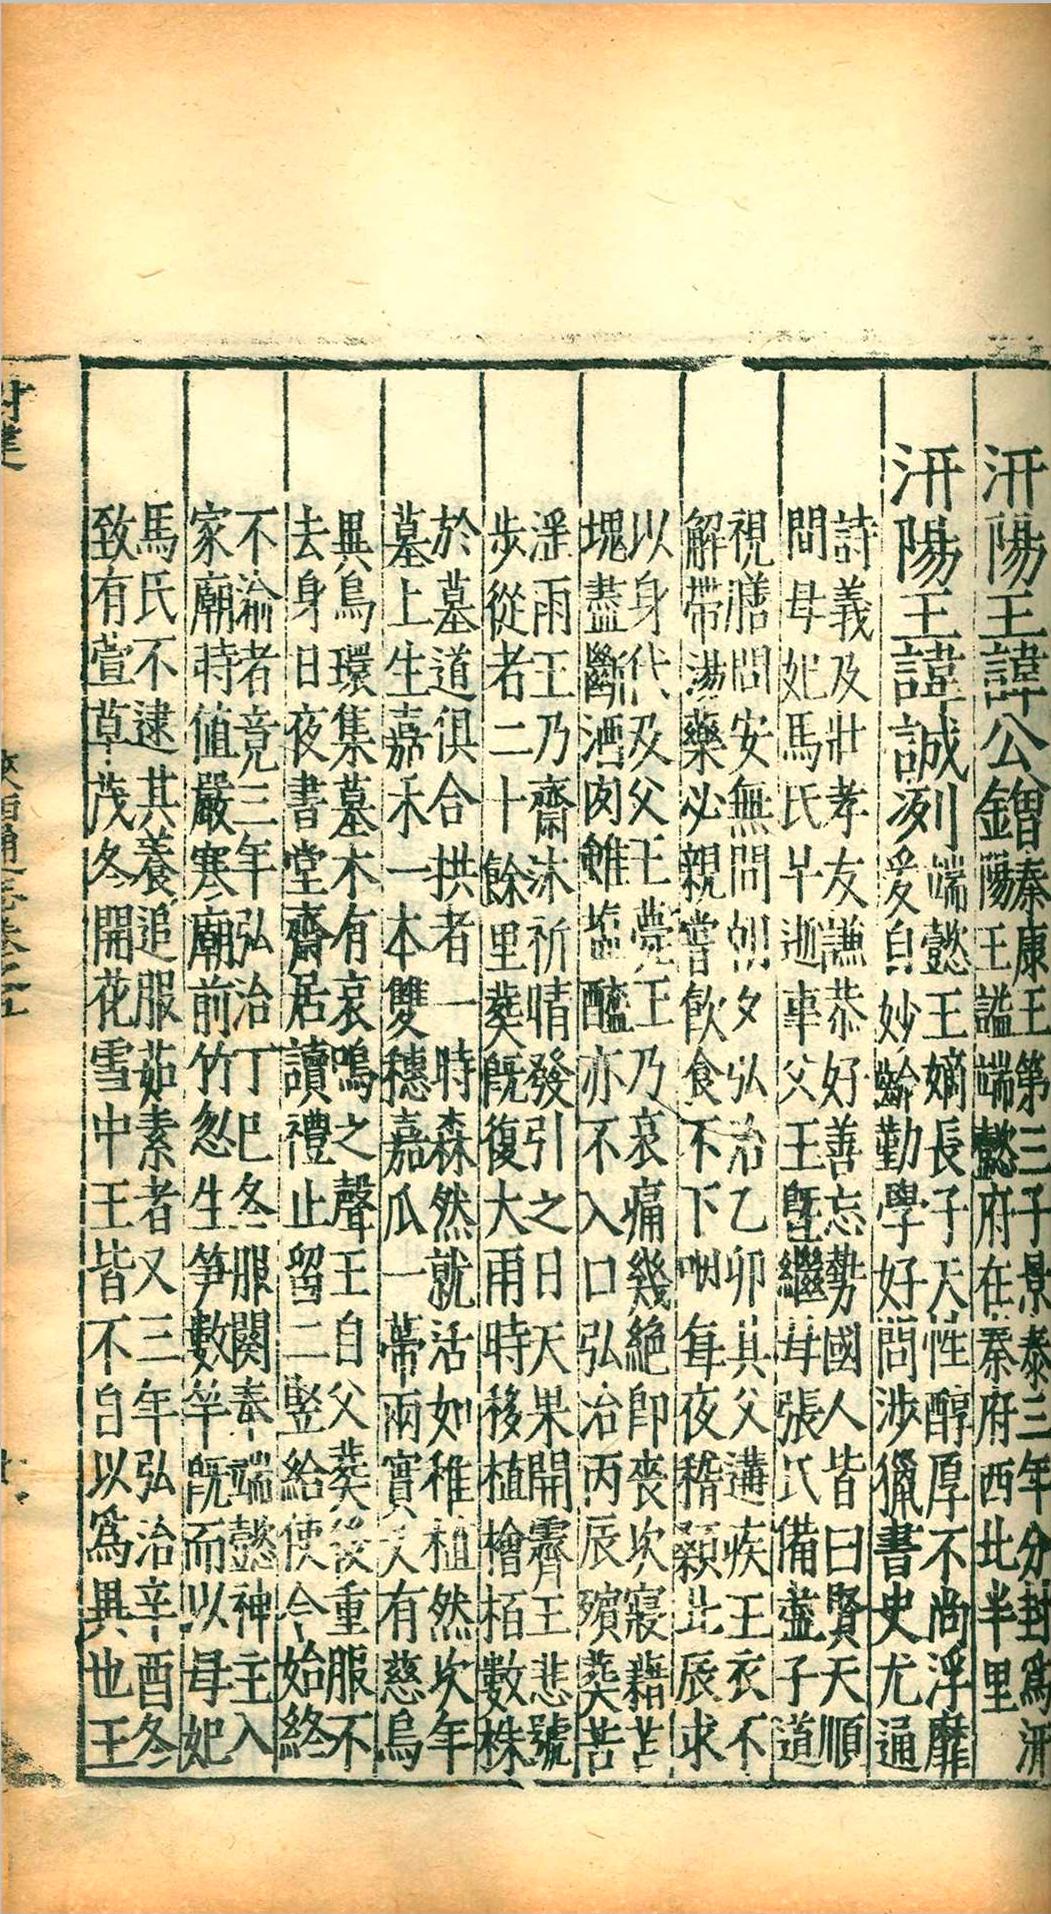 汧陽王諱公鏳
秦康王第三子景泰三年分封爲汧
陽王諡端懿府在秦府西北半里
汧陽王諱誠洌
端懿王嫡長子天性醇厚不尚浮靡
爰自妙齡勤學好問涉獵書史尤通
詩義及壯孝友謙恭好善忘勢國人皆曰賢天順
間母妃馬氏早逝事父王曁繼母張氏備盡子道
視膳問安無間朝夕弘治乙卯其父遘疾王衣不
解帶湯藥必親嘗飲食不下咽每夜稽顙北辰求
以身代及父王薨王乃哀痛幾絶卽喪次寢藉苫
塊蓋斷酒肉雖塩醯亦不入口弘治丙辰殯葬苦
滛雨王乃齋沐祈晴發引之日天果開霽王悲號
步從者二十餘里葬旣復大雨時移植檜栢數株
於墓道俱合拱者一時森然就活如稚植然次年
墓上生嘉禾一本雙穗嘉瓜一蒂兩實又有慈烏
異鳥環集墓木有哀鳴之聲王自父葬後重服不
去身日夜書堂齋居讀禮止留二竪給使令始終
不渝者竟三年弘治丁巳冬服闋奉端懿神主入
家廟時値嚴寒廟前竹忽生笋數竿旣而以母妃
馬氏不逮其養追服茹素者又三年弘治辛酉冬
致有萱草茂冬開花雪中王皆不自以爲異也王